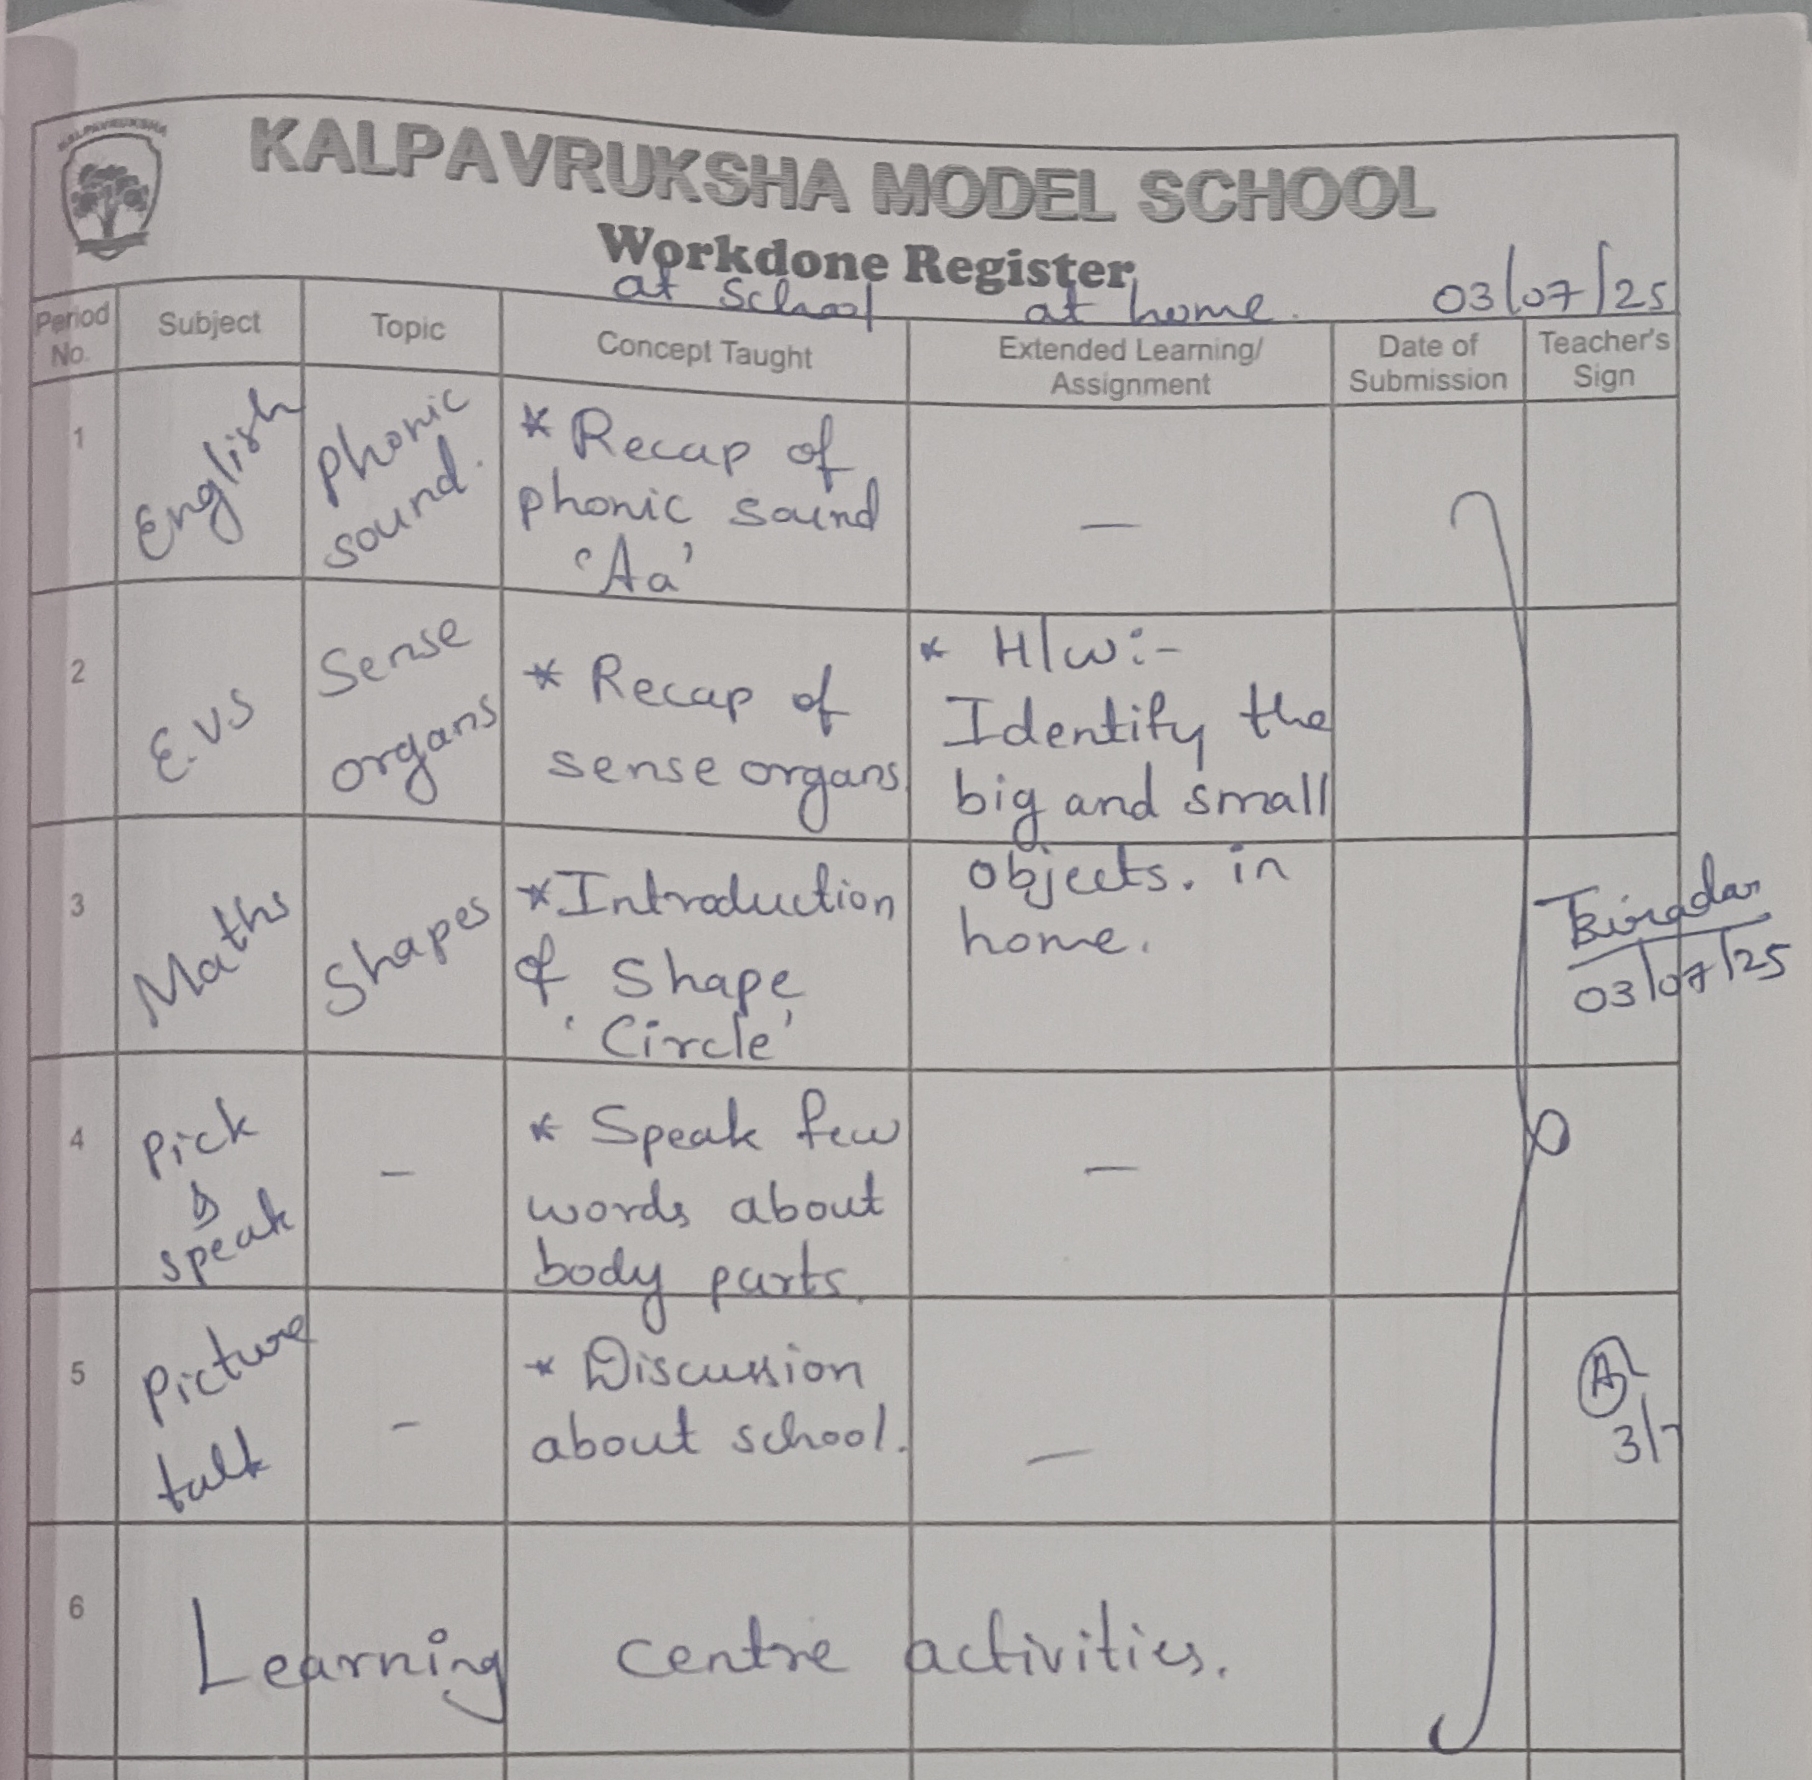 KALPAVRUKSHA
KALPAVRUKSHA MODEL SCHOOL
Workdone Register
at school at home. 03/07/25
Period No. Subject Topic Concept Taught Extended Learning/ Assignment Date of Submission Teacher's Sign
1 English Phonic sound.
* Recap of
phonic sound
'Aa'
—
2 E.VS Sense organs
* Recap of
sense organs
* H/W:-
Identify the
big and small
objects. in
home.
3 Maths Shapes
* Introduction
of Shape
'Circle'
Biradar
03/07/25
4 Pick & speak –
* Speak few
words about
body parts.
—
5 Picture talk –
* Discussion
about school.
—
3/7
6 Learning centre activities.